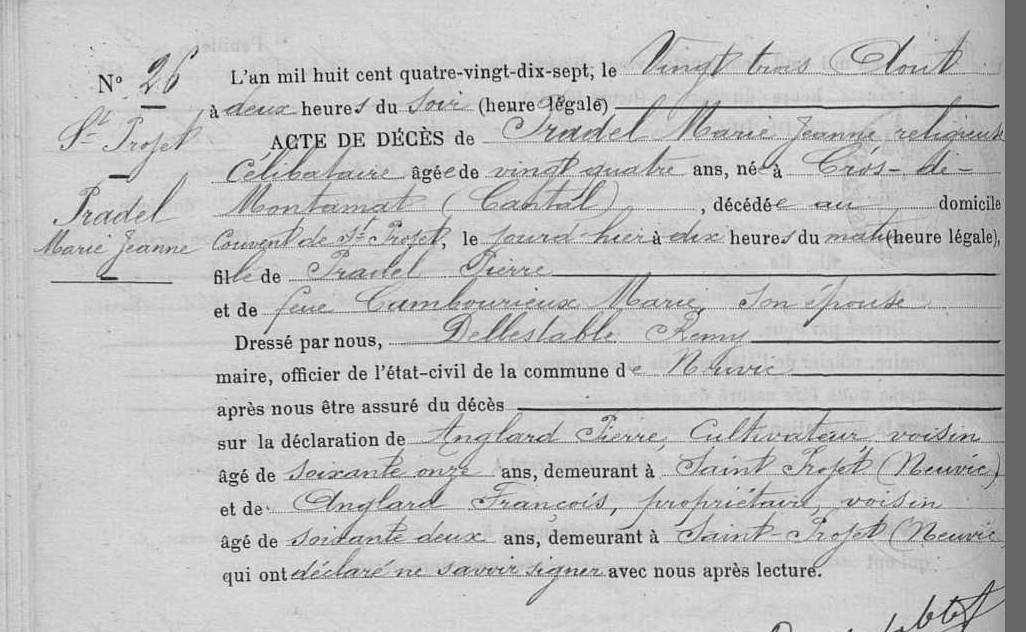 N° 26
L'an mil huit cent quatre-vingt-dix-sept, le Vingt trois Aout
à deux heures du soir (heure légale)
St Projet
ACTE DE DÉCÈS de Pradel Marie Jeanne religieuse
Célibataire âgée de vingt quatre ans, née à Cros-de-
Pradel
Montamat (Cantal), décédée au domicile
Marie Jeanne
Couvent de St Projet, le jourd'hier à dix heures du matin (heure légale),
fille de Pradel Pierre
et de feue Cambourieux Marie, son épouse
Dressé par nous, Dellestable Remy
maire, officier de l'état-civil de la commune de Neuvic
après nous être assuré du décès
sur la déclaration de Anglard Pierre, Cultivateur, voisin
âgé de soixante onze ans, demeurant à Saint Projet (Neuvic)
et de Anglard François, propriétaire, voisin
âgé de soixante deux ans, demeurant à Saint-Projet (Neuvic
qui ont déclaré ne savoir signer avec nous après lecture.